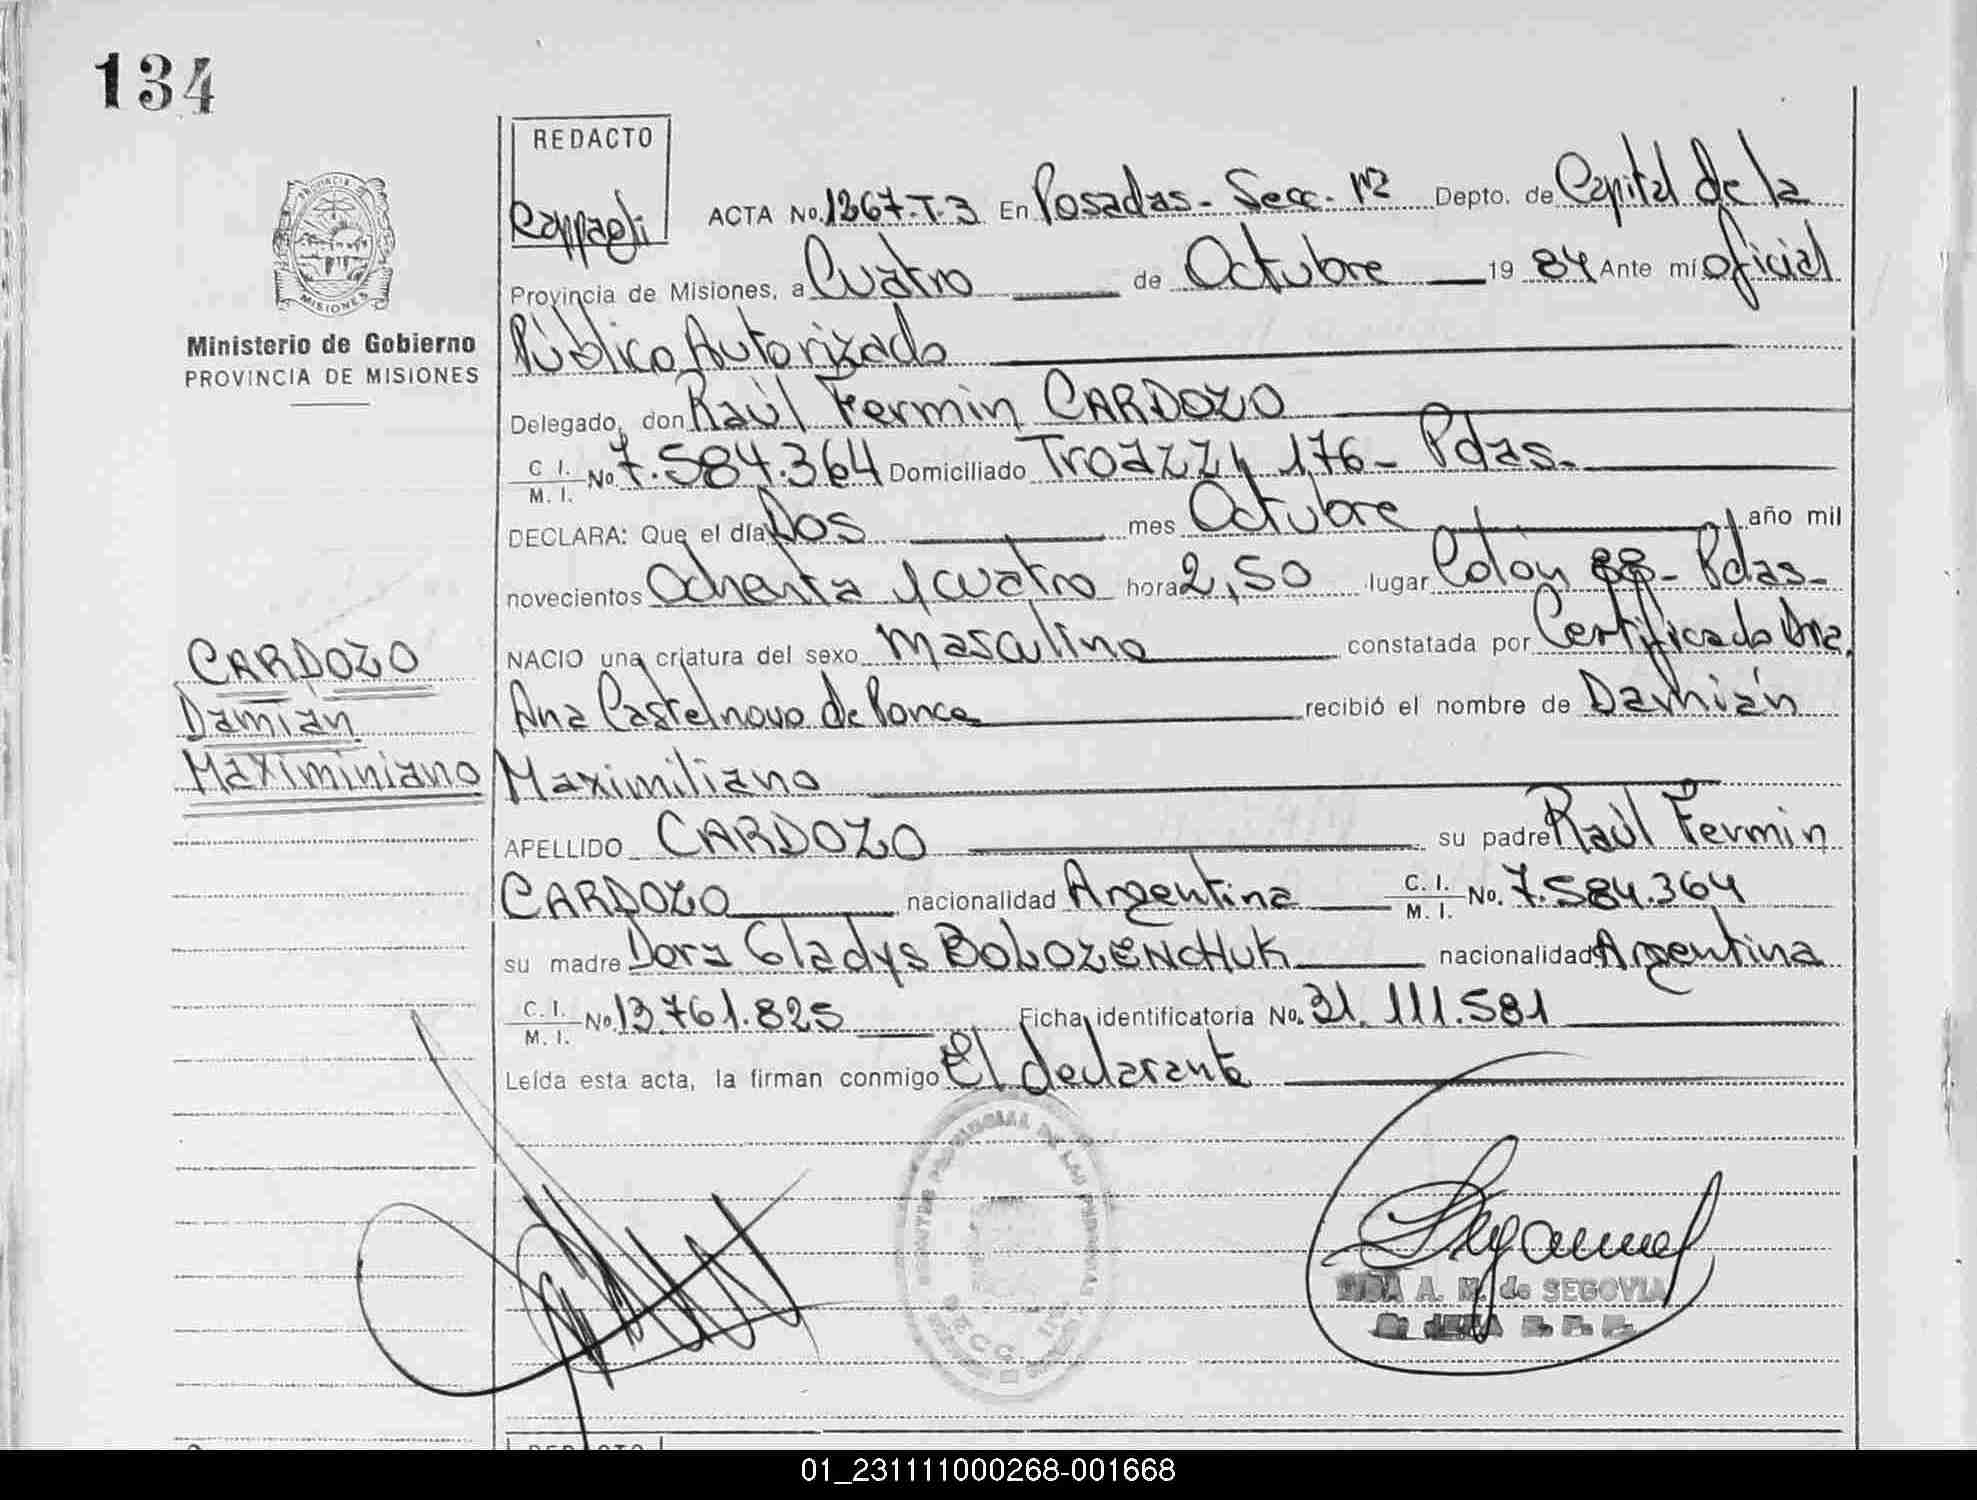 134
REDACTO
Cappagli
ACTA No. 1267-T.3 En Posadas - Secc. 1ra Depto. de Capital de la
Provincia de Misiones, a Cuatro de Octubre 1984 Ante mí oficial
Público Autorizado
MISIONES
Ministerio de Gobierno
PROVINCIA DE MISIONES
Delegado, don Raúl Fermin CARDOZO
C. I. / M. I. No. 7.584.364 Domiciliado Troazzi 176 - Pdas.
DECLARA: Que el día Dos mes Octubre año mil
novecientos Ochenta y cuatro hora 2,50 lugar Colón 88 - Pdas -
NACIO una criatura del sexo masculino constatada por Certificado Dra.
Ana Castelnovo de Ponce recibió el nombre de Damián
Maximiliano
CARDOZO
Damián
Maximiniano
APELLIDO CARDOZO su padre Raúl Fermin
CARDOZO nacionalidad Argentina C. I. / M. I. No. 7.584.364
su madre Dora Gladys BOLOZENCHUK nacionalidad Argentina
C. I. / M. I. No. 13.761.825 Ficha identificatoria No. 31.111.581
Leída esta acta, la firman conmigo El declarante
A. M. de SEGOVIA
REDACTO
01_231111000268-001668